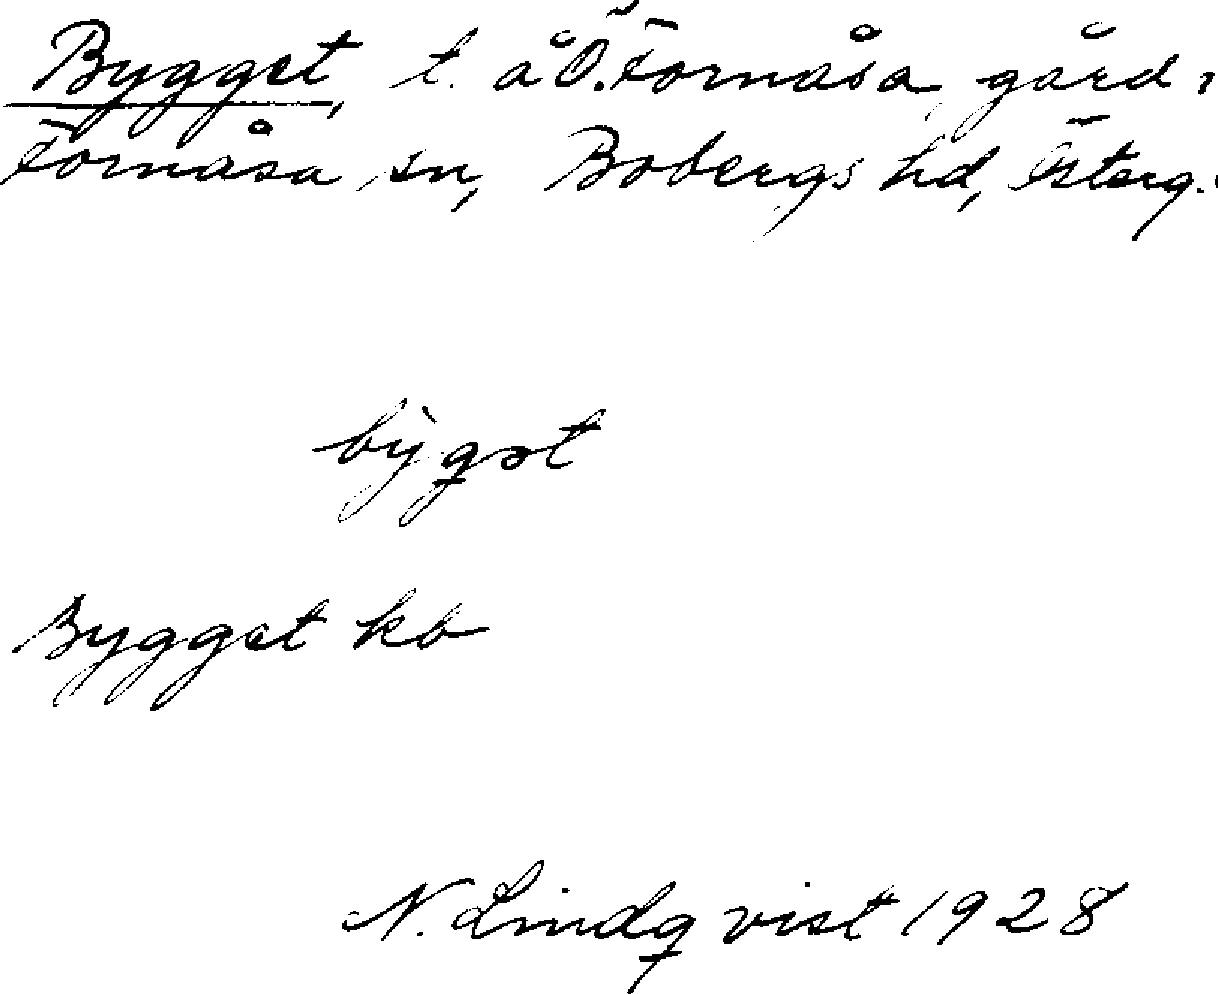 Bygget, t. å Ö. Fornåsa gård,
Fornåsa sn, Bobergs hd, Österg.
bỳgət
Bygget kb
N. Lindqvist 1928